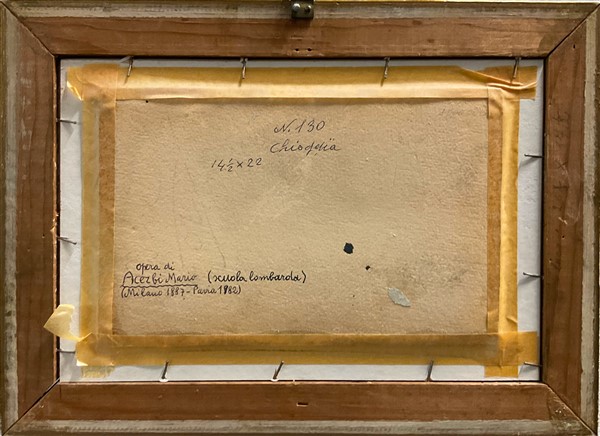 N. 130
Chioggia
14 ½ × 22
opera di
Acerbi Mario (scuola lombarda)
(Milano 1887 - Pavia 1982)